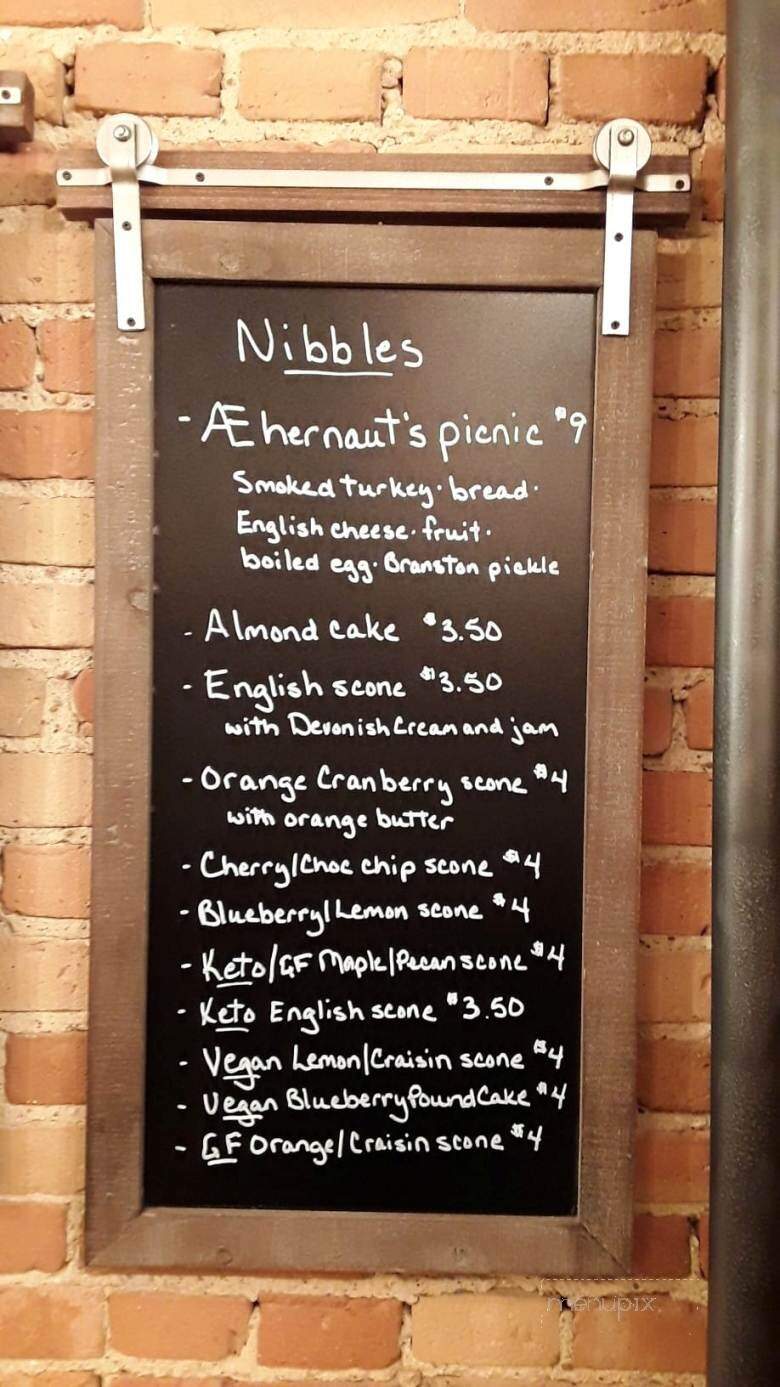 Nibbles
- Æhernaut's picnic $9
Smoked turkey · bread ·
English cheese · fruit ·
boiled egg · Branston pickle
- Almond cake $3.50
- English scone $3.50
with Devonish Cream and jam
- Orange Cranberry scone $4
with orange butter
- Cherry/Choc chip scone $4
- Blueberry/Lemon scone $4
- Keto/GF Maple/Pecan scone $4
- Keto English scone $3.50
- Vegan Lemon/Craisin scone $4
- Vegan Blueberry Pound Cake $4
- GF Orange/Craisin scone $4
menupix